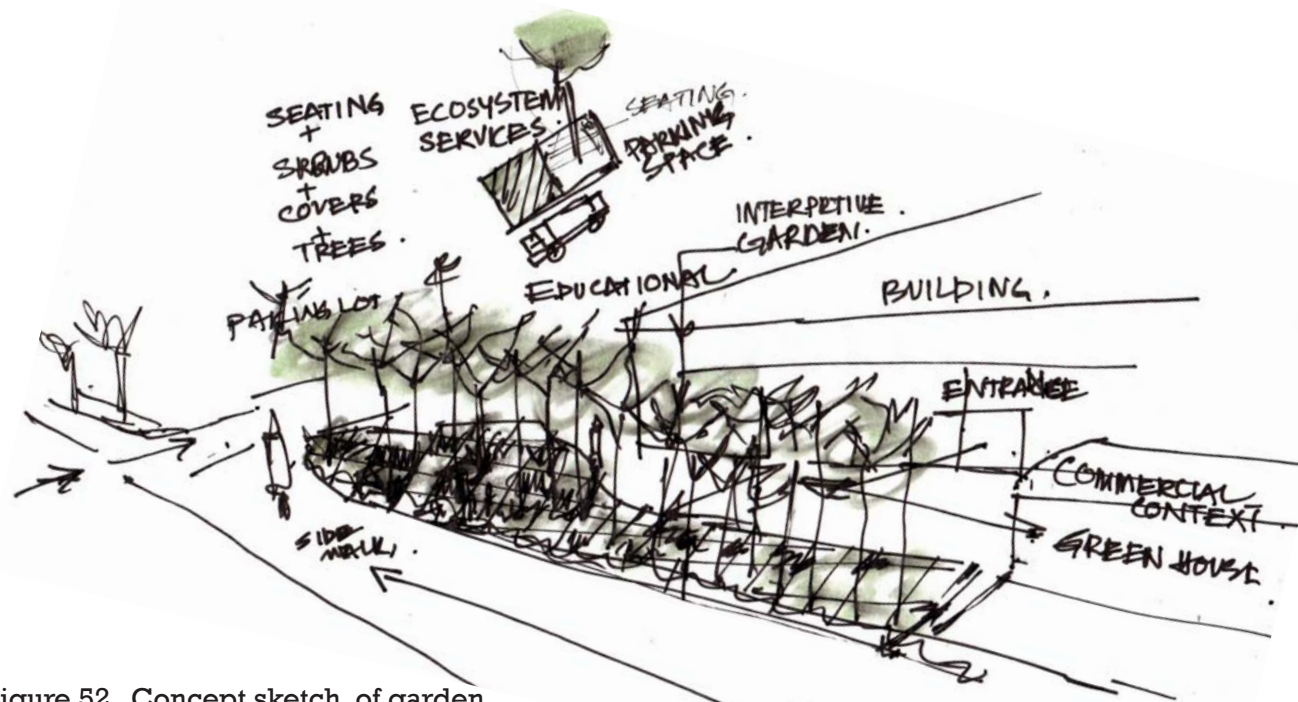 SEATING
+
SRBUBS
+
COVERS
+
TREES.
ECOSYSTEM
SERVICES.
SEATING.
PARKING
SPACE.
INTERPRTIVE.
GARDEN.
EDUCATIONAL
BUILDING.
PAKING LOT
ENTRANCE
COMMERCIAL
CONTEXT.
GREEN HOUSE.
SIDE
WALK.
igure 52. Concept sketch of garden